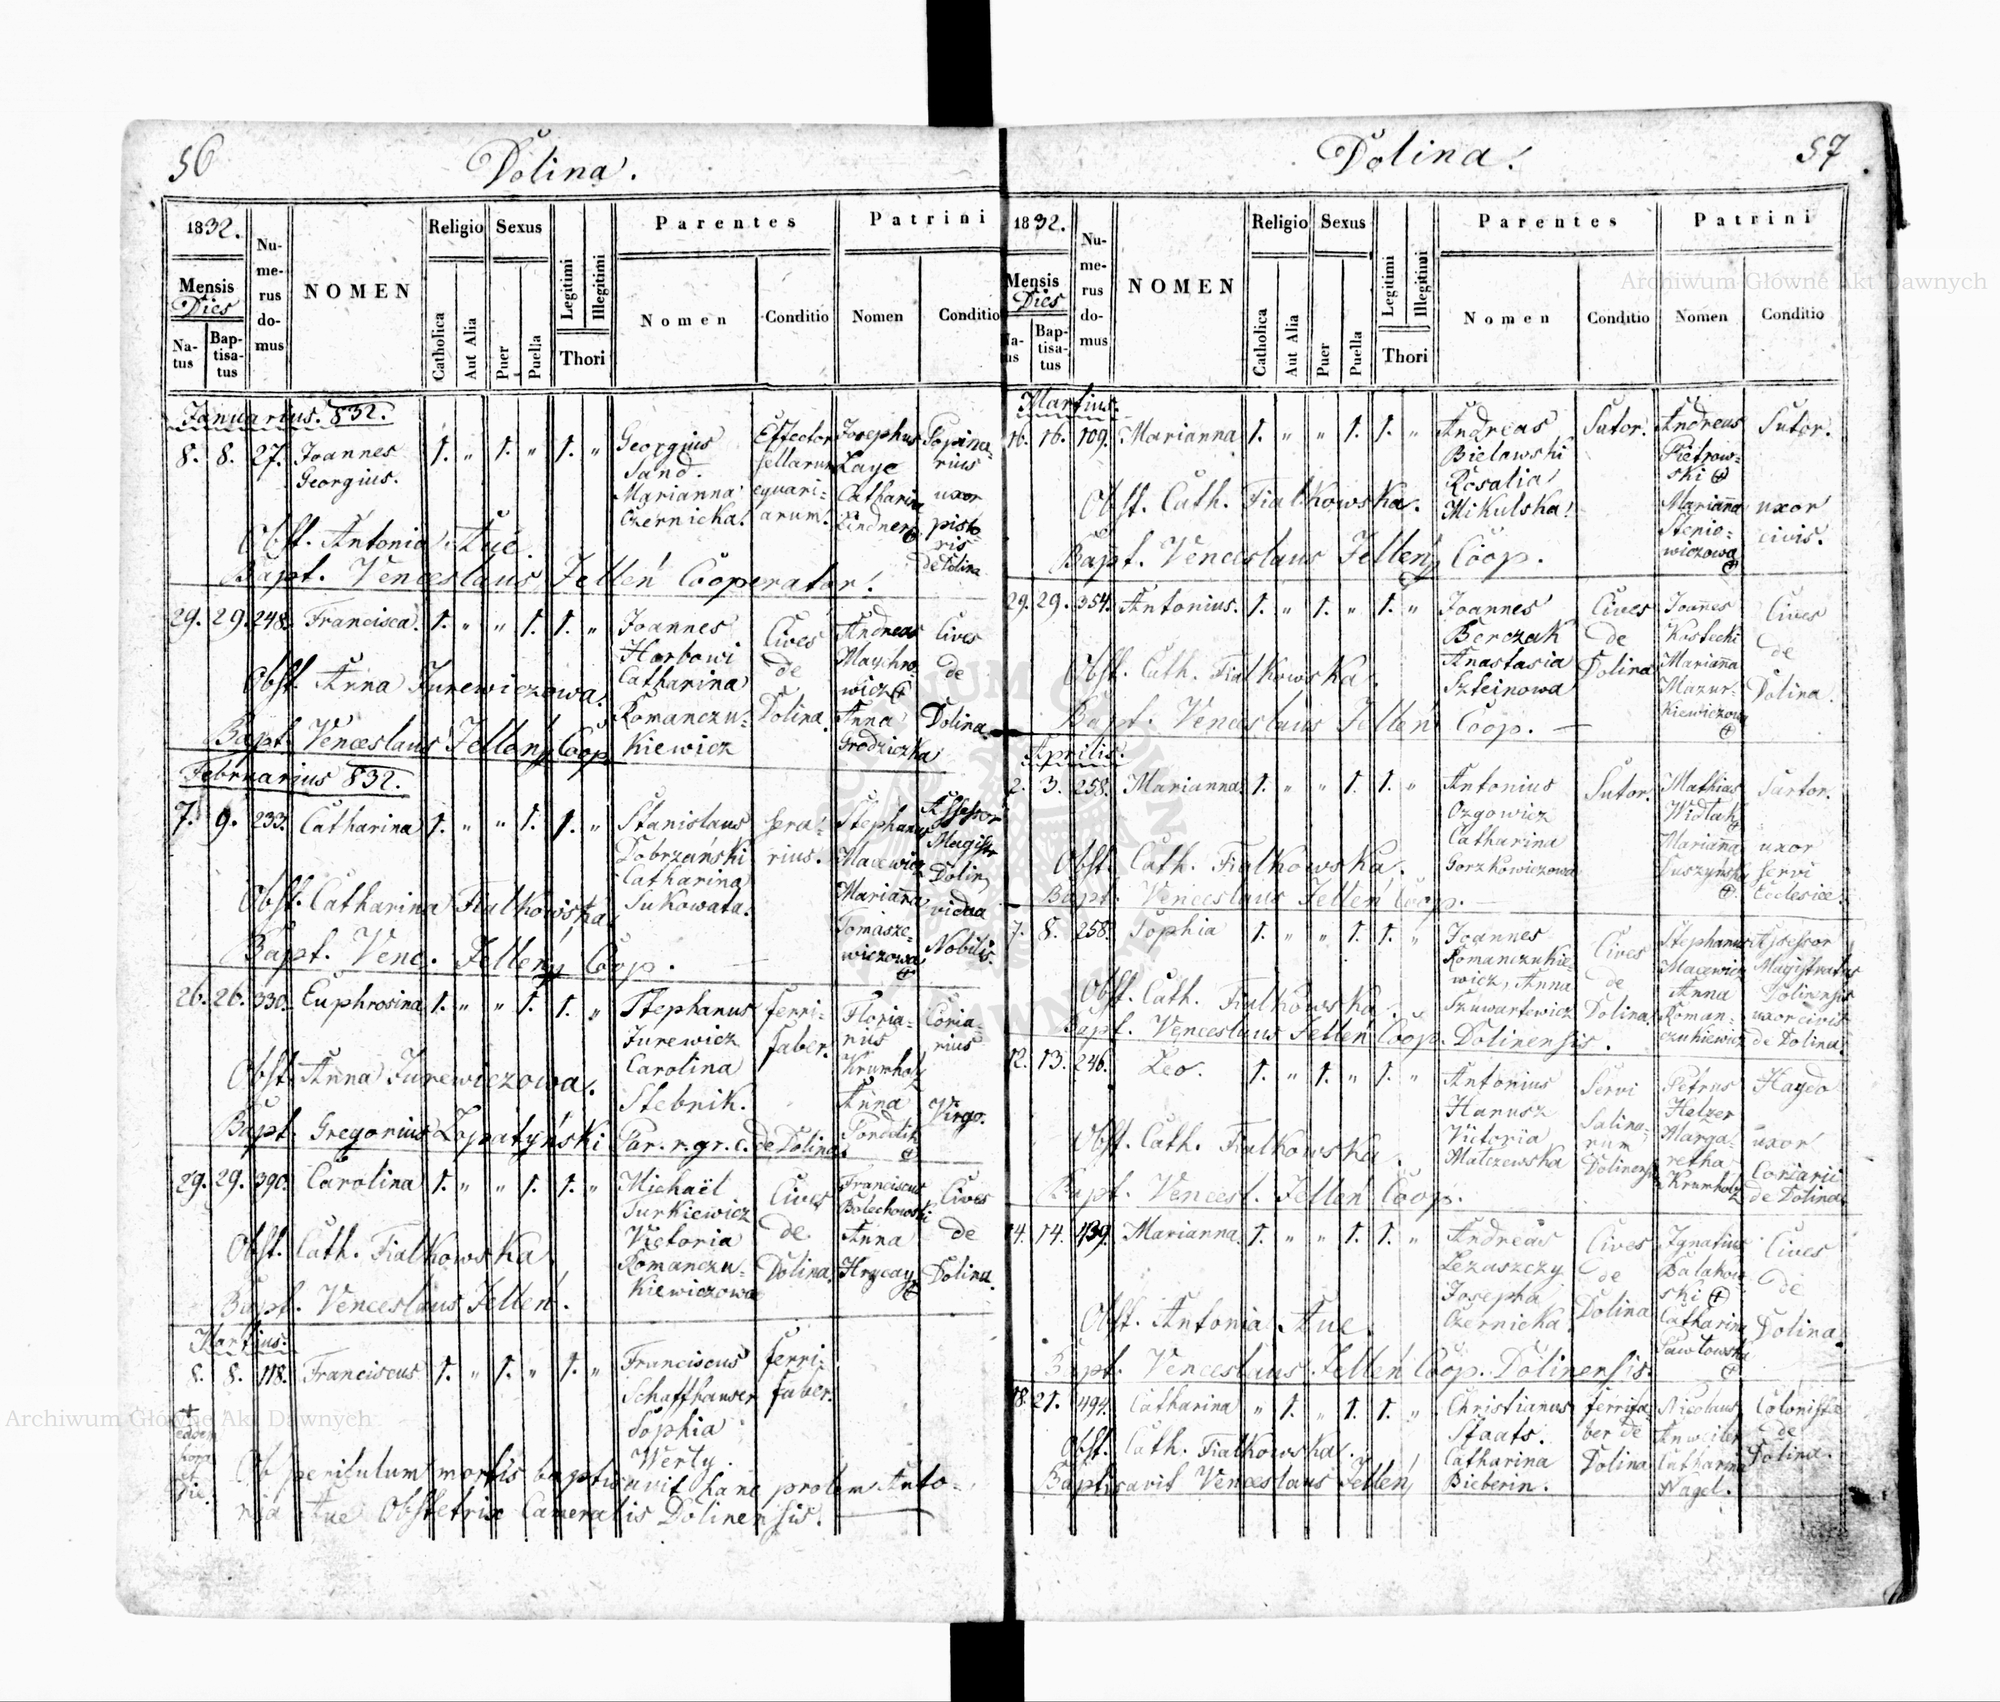 56
Dolina.
1832.
Numerus domus
NOMEN
Religio
Sexus
Legitimi
Illegitimi
Parentes
Patrini
Mensis
Dies
Natus
Baptisatus
Catholica
Aut Alia
Puer
Puella
Thori
Nomen
Conditio
Nomen
Conditio
Januarius. 832.
8. 8. 27. Joannes Georgius. 1. „ 1. „ 1. „
Georgius
Sand.
Marianna
Czernicka.
Effector
sellarum
equari-
arum.
Josephus
Laye
Catharina
Lindner
Popina
rius
uxor
pisto-
ris
de Dolina
Obst. Antonia Aue.
Bapt. Venceslaus Jelleń Cooperator.
29. 29. 248. Francisca. 1. „ „ 1. 1. „
Joannes
Horbowi
Catharina
Romanczu-
kiewicz
Cives
de
Dolina
Andreas
Maychro-
wicz
Anna
Grodziczka
Cives
de
Dolina.
Obst. Anna Jurewiczowa.
Bapt. Venceslaus Jelleny Coop.
Februarius 832.
7. 9. 233. Catharina 1. „ „ 1. 1. „
Stanislaus
Dobrzański
Catharina
Sukowata.
sera-
rius.
Stephanus
Macewicz
Marianna
Tomasze-
wiczowa
Assessor
Magistr
Dolin,
vidua
Nobilis.
Obst. Catharina Fialkowska
Bapt. Venc. Jelleny Coop.
26. 26. 330. Euphrosina 1. „ „ 1. 1. „
Stephanus
Jurewicz
Carolina
Stebnik.
ferri-
faber.
Floria-
nus
Krumholz
Anna
Coria-
rius
Virgo.
Obst. Anna Jurewiczowa.
Bapt. Gregorius Łopatyński Par. r. gr. c. de Dolina.
29. 29. 390. Carolina 1. „ „ 1. 1. „
Michaël
Turkiewicz
Victoria
Romanczu-
kiewiczowa
Cives
de
Dolina
Franciscus
Bolechowski
Anna
Hrycay
Cives
de
Dolina.
Obst. Cath. Fialkowska
Bapt. Venceslaus Jelleń.
Martius.
8. 8. 118. Franciscus 1. „ 1. „ 1. „
Franciscus
Schaffhauser
Sophia
Werty.
ferri-
faber.
Ob periculum mortis baptisavit hanc prolem Anto-
nia Aue Obstetrix Cameralis Dolinensis.
57
Dolina.
1832.
Numerus domus
NOMEN
Religio
Sexus
Legitimi
Illegitimi
Parentes
Patrini
Mensis
Dies
Baptisatus
Catholica
Aut Alia
Puer
Puella
Thori
Nomen
Conditio
Nomen
Conditio
Martius.
16. 16. 109. Marianna 1. „ „ 1. 1. „
Andreas
Bielawski
Rosalia
Mikulska.
Sutor.
Andreas
Pietrow-
ski
Marianna
Stenio-
wiczowa
Sutor.
uxor
civis.
Obst. Cath. Fialkowska.
Bapt. Venceslaus Jelleny Coop.
29. 29. 354. Antonius. 1. „ 1. „ 1. „
Joannes
Berczak
Anastasia
Szteinowa
Cives
de
Dolina
Joannes
Kostecki
Marianna
Mazur-
kiewiczowa
Cives
de
Dolina.
Obst. Cath. Fialkowska.
Bapt. Venceslaus Jelleń Coop.
Aprilis.
2. 3. 258. Marianna 1. „ „ 1. 1. „
Antonius
Ozgowicz
Catharina
Gorzkowiczowa
Sutor.
Mathias
Widlak
Marianna
Sartor.
uxor
servi
Ecclesiae.
Obst. Cath. Fialkowska.
Bapt. Venceslaus Jelleń Coop.
7. 8. 258. Sophia 1. „ „ 1. 1. „
Joannes
Romanczukie-
wicz, Anna
Szuwartewicz
Cives
de
Dolina.
Stephanus
Macewicz
Anna
Roman-
czukiewicz
Assessor
Magistratus
Dolinensis
uxor civis
de Dolina.
Obst. Cath. Fialkowska.
Bapt. Venceslaus Jelleń Coop. Dolinensis.
12. 13. 246. Leo. 1. „ 1. „ 1. „
Antonius
Hanusz
Victoria
Malczewska
Servi
Salina-
rum
Dolinensis
Petrus
Helzer
Marga-
retha
Krumholz
Haydo
uxor
Coriarii
de Dolina
Obst. Cath. Fialkowska.
Bapt. Vencesl. Jelleń Coop.
14. 14. 439. Marianna 1. „ „ 1. 1. „
Andreas
Lezuszczy
Josepha
Czernicka.
Cives
de
Dolina
Ignatius
Balakow-
ski
Catharina
Pawlowska
Cives
de
Dolina
Obst. Antonia Aue.
Bapt. Venceslaus Jelleń Coop. Dolinensis.
18. 21. 494. Catharina „ 1. „ 1. 1. „
Christianus
Staats.
Catharina
Bieberin.
ferrifa-
ber de
Dolina
Nicolaus
Anweiler
Catharina
Nagel.
Colonista
de
Dolina.
Obst. Cath. Fialkowska.
Baptisavit Venceslaus Jelleń
Archiwum Główne Akt Dawnych
Archiwum Główne Akt Dawnych